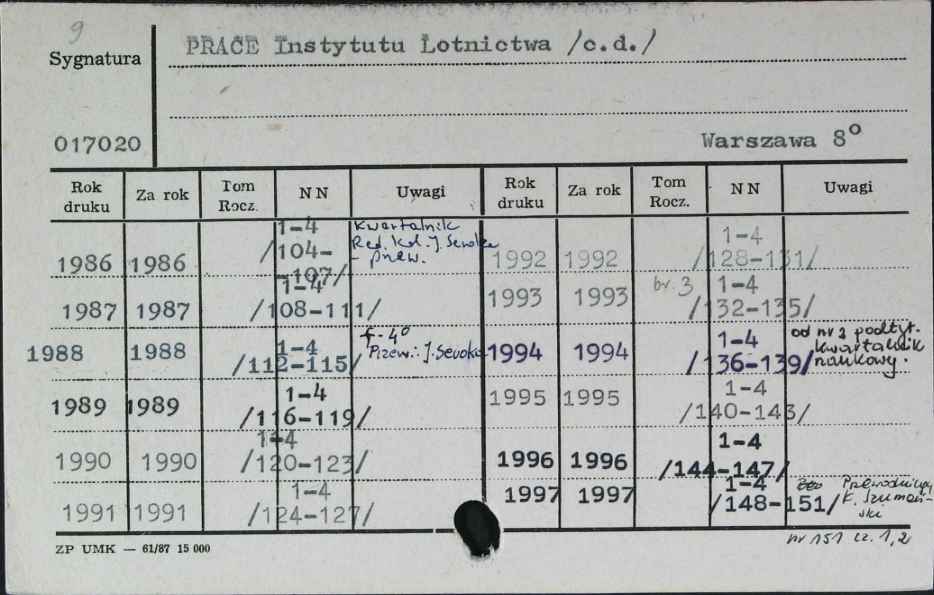 9
Sygnatura
PRACE Instytutu Lotnictwa /c.d./
017020
Warszawa 8°
Rok druku Za rok Tom Rocz. NN Uwagi Rok druku Za rok Tom Rocz. NN Uwagi
1986 1986 1-4 /104-107/ Kwartalnik Red. kol. J. - przew. 1992 1992 1-4 /128-131/
1987 1987 1-4 /108-111/ 1993 1993 br. 3 1-4 /132-135/
1988 1988 1-4 /112-115/ f-4° Przew.: J. 1994 1994 1-4 /136-139/ od nr 2 podtyt. kwartalnik naukowy.
1989 1989 1-4 /116-119/ 1995 1995 1-4 /140-143/
1990 1990 1-4 /120-123/ 1996 1996 1-4 /144-147/
1991 1991 1-4 /124-127/ 1997 1997 1-4 /148-151/ Przewodniczący K. Szumański
nr 151 cz. 1, 2
ZP UMK — 61/87 15 000